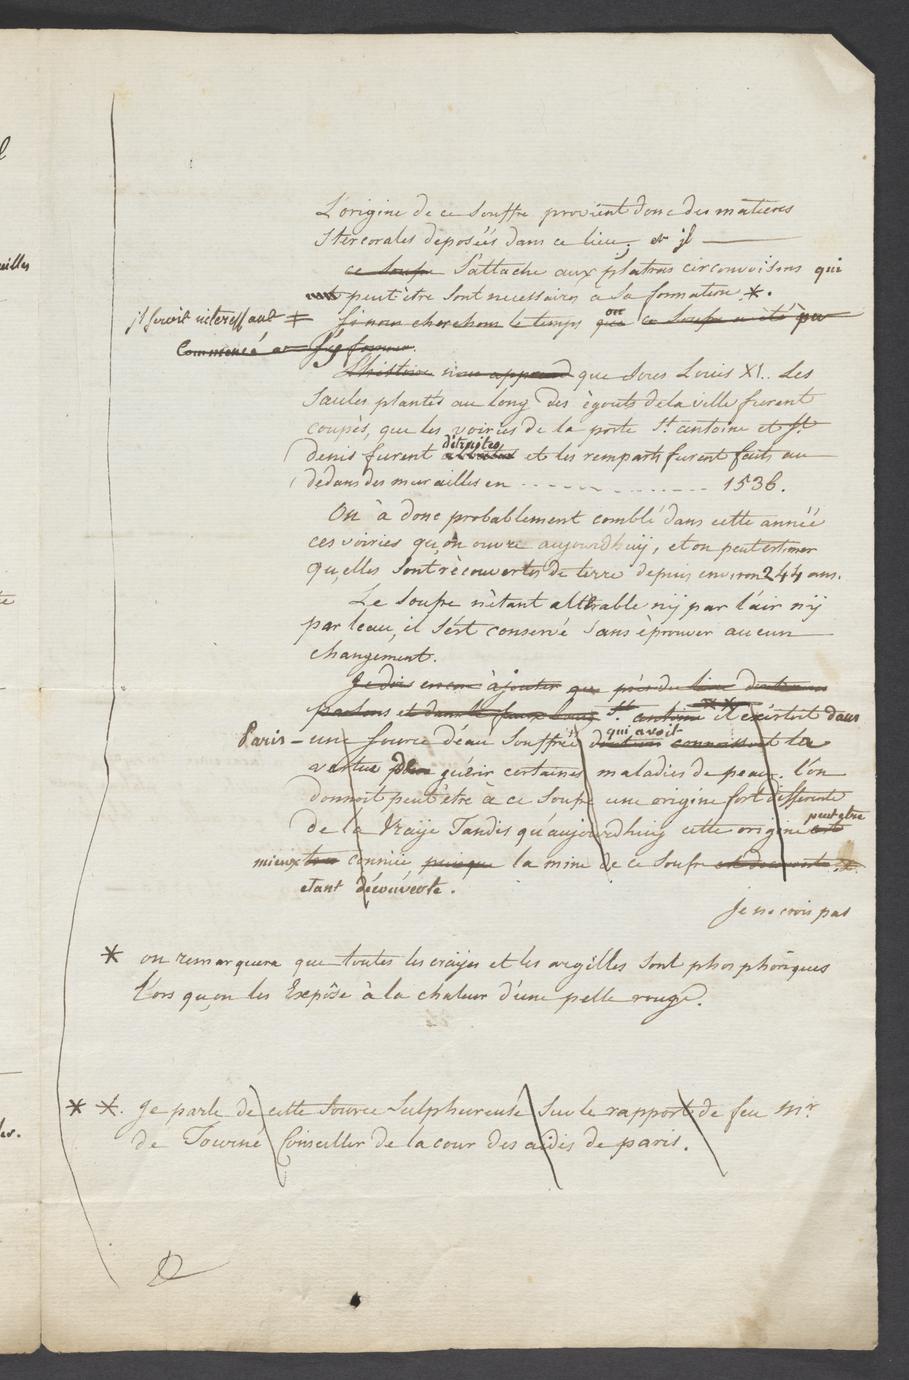 L'origine de ce souffre provient donc des matieres
stercorales deposées dans ce lieu; et il
ce soufre s'attache aux platras circonvoisins qui
peut être sont necessaires a sa formation *.
il seroit interessant ‡ si nous cherchons le temps ou ce soufre a été
commencé a s'y former.
L'histoire nous apprend que sous Louis XI. les
saules plantés au long des ègouts de la ville furent
coupés, que les voiries de la porte St. antoine et St.
denis furent détruites et les remparts furent faits au
dedans des murailles en - - - - - - - - - 1536.
On à donc probablement comblé dans cette année
ces voiries qu'on ouvre aujourdhuij, et on peut estimer
qu'elles sont rècouvertes de terre depuis environ 244 ans.
Le soufre n'étant altérable nij par l'air nij
par l'eau, il s'est conservé sans èprouver aucun
changement.
Je dois encore àjouter que près du lieu dont nous
parlons et dans le faux bourg St. antoine ** il existoit dans
Paris - une source d'eau souffrée qui avoit connoissoit la
vertue de guérir certaines maladies de peau. l'on
donnoit peut être à ce soufre une origine fort differente
de la vraije Tandis qu'aujourdhuij cette origine est peut etre
mieux connuë, puisque la mine de ce soufre est decouverte
etant découverte.
Je ne crois pas
* on remarquera que toutes les craijes et les argilles sont phosphoriques
lors qu'on les Expôse à la chaleur d'une pelle rouge.
* *. Je parle de cette source sulphureuse sur le rapport de feu Mr.
de Tourné Conseiller de la cour des aides de paris.